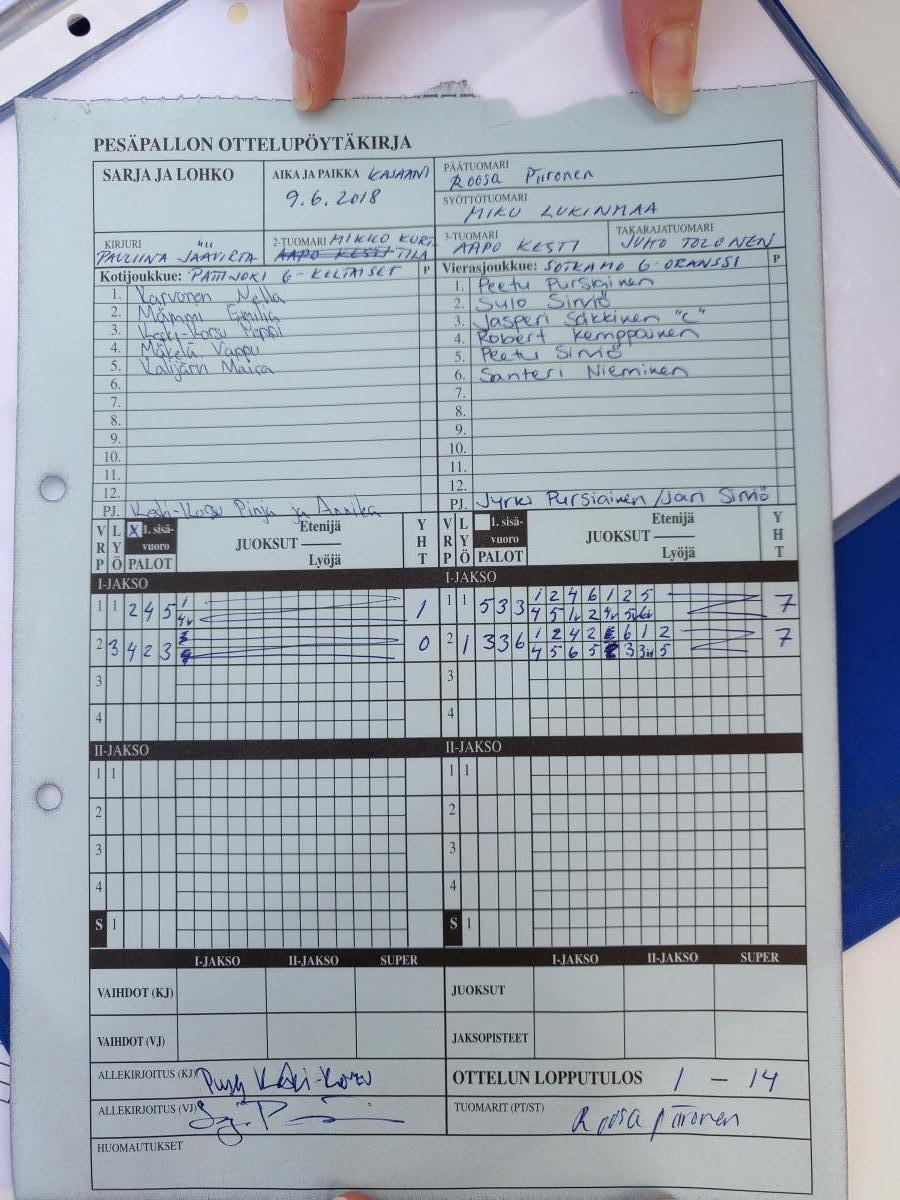 PESÄPALLON OTTELUPÖYTÄKIRJA
SARJA JA LOHKO
AIKA JA PAIKKA KAJAANI
9.6.2018
PÄÄTUOMARI
Roosa Piironen
SYÖTTÖTUOMARI
MIKU LUKINMAA
KIRJURI
PAULIINA JÄÄVIRTA
2-TUOMARI MIKKO KURT
AAPO KESTI TILA
3-TUOMARI
AAPO KESTI
TAKARAJATUOMARI
JUHO TOLONEN
Kotijoukkue: PATTIJOKI G-KELTAISET P
Vierasjoukkue: SOTKAMO G-ORANSSI P
1. Karvonen Nella
2. Mämmi Emilia
3. Kaki-Kosu Peppi
4. Mäkelä Vappu
5. Kalijärvi Maisa
6.
7.
8.
9.
10.
11.
12.
PJ. Pinja ja Annika
1. Peetu Pursiainen
2. Sulo Sirviö
3. Jasperi Säkkinen "C"
4. Robert Kemppainen
5. Peetu Sirviö
6. Santeri Nieminen
7.
8.
9.
10.
11.
12.
PJ. Jyrki Pursiainen / Jari Sirviö
VRP LYÖ X 1. sisävuoro PALOT JUOKSUT Etenijä Lyöjä YHT
VRP LYÖ 1. sisävuoro PALOT JUOKSUT Etenijä Lyöjä YHT
I-JAKSO I-JAKSO
1 1 2 4 5 1 1
4v
2 3 4 2 3 0
3
4
1 1 5 3 3 1 2 4 6 1 2 5 7
4 5 1v 2 4v 5 6v
2 1 3 3 6 1 2 4 2 6 1 2 7
4 5 6 5 3 3v 5
3
4
II-JAKSO II-JAKSO
1 1
2
3
4
S 1
1 1
2
3
4
S 1
I-JAKSO II-JAKSO SUPER
I-JAKSO II-JAKSO SUPER
VAIHDOT (KJ)
JUOKSUT
VAIHDOT (VJ)
JAKSOPISTEET
ALLEKIRJOITUS (KJ)
OTTELUN LOPPUTULOS 1 – 14
ALLEKIRJOITUS (VJ)
TUOMARIT (PT/ST)
Roosa Piironen
HUOMAUTUKSET